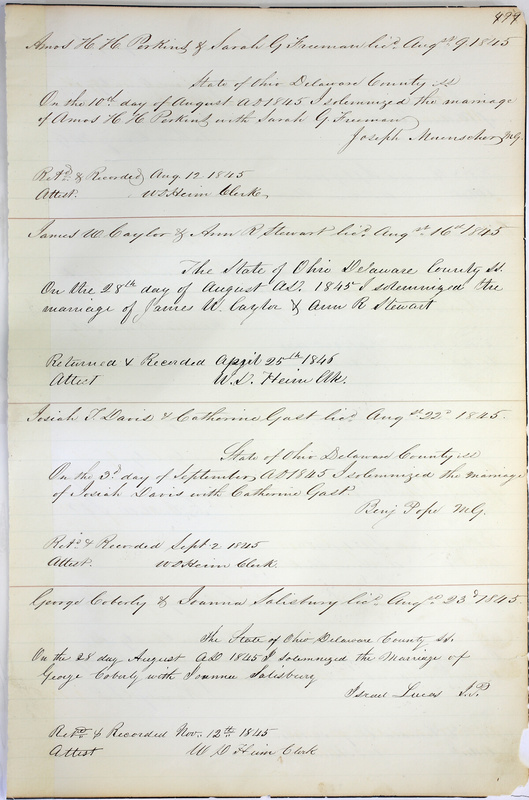 499
Amos H. H. Perkins & Sarah G Freeman lic.d Augst 9 1845
State of Ohio Delaware County ss
On the 10th day of August AD 1845 I solemnized the marriage
of Amos H H Perkins with Sarah G Freeman
Joseph Muenscher MG.
Retd & Recorded Aug. 12 1845
Attest. W D Heim Clerk
James W Caylor & Ann R Stewart lic.d Augst 16th 1845
The State of Ohio Delaware County ss.
On the 28th day of August AD. 1845 I solemnized the
marriage of James W. Caylor & Ann R Stewart
Returned & Recorded April 25th 1846
Attest W. D. Heim Clk.
Josiah T. Davis & Catherine Gast lic.d Augst 22d 1845.
State of Ohio Delaware County ss
On the 3d day of September AD 1845 I solemnized the marriage
of Josiah Davis with Catherine Gast
Benj Pope MG.
Retd & Recorded Sept 2 1845
Attest. W D Heim Clerk.
George Coberly & Joanna Salisbury lic.d Augst 23d 1845.
The State of Ohio Delaware County ss.
On the 28 day August AD 1845 I solemnized the Marriage of
George Coberly with Joanna Salisbury
Israel Lucas J.P
Retd & Recorded Nov. 12th 1845
Attest W D Heim Clerk